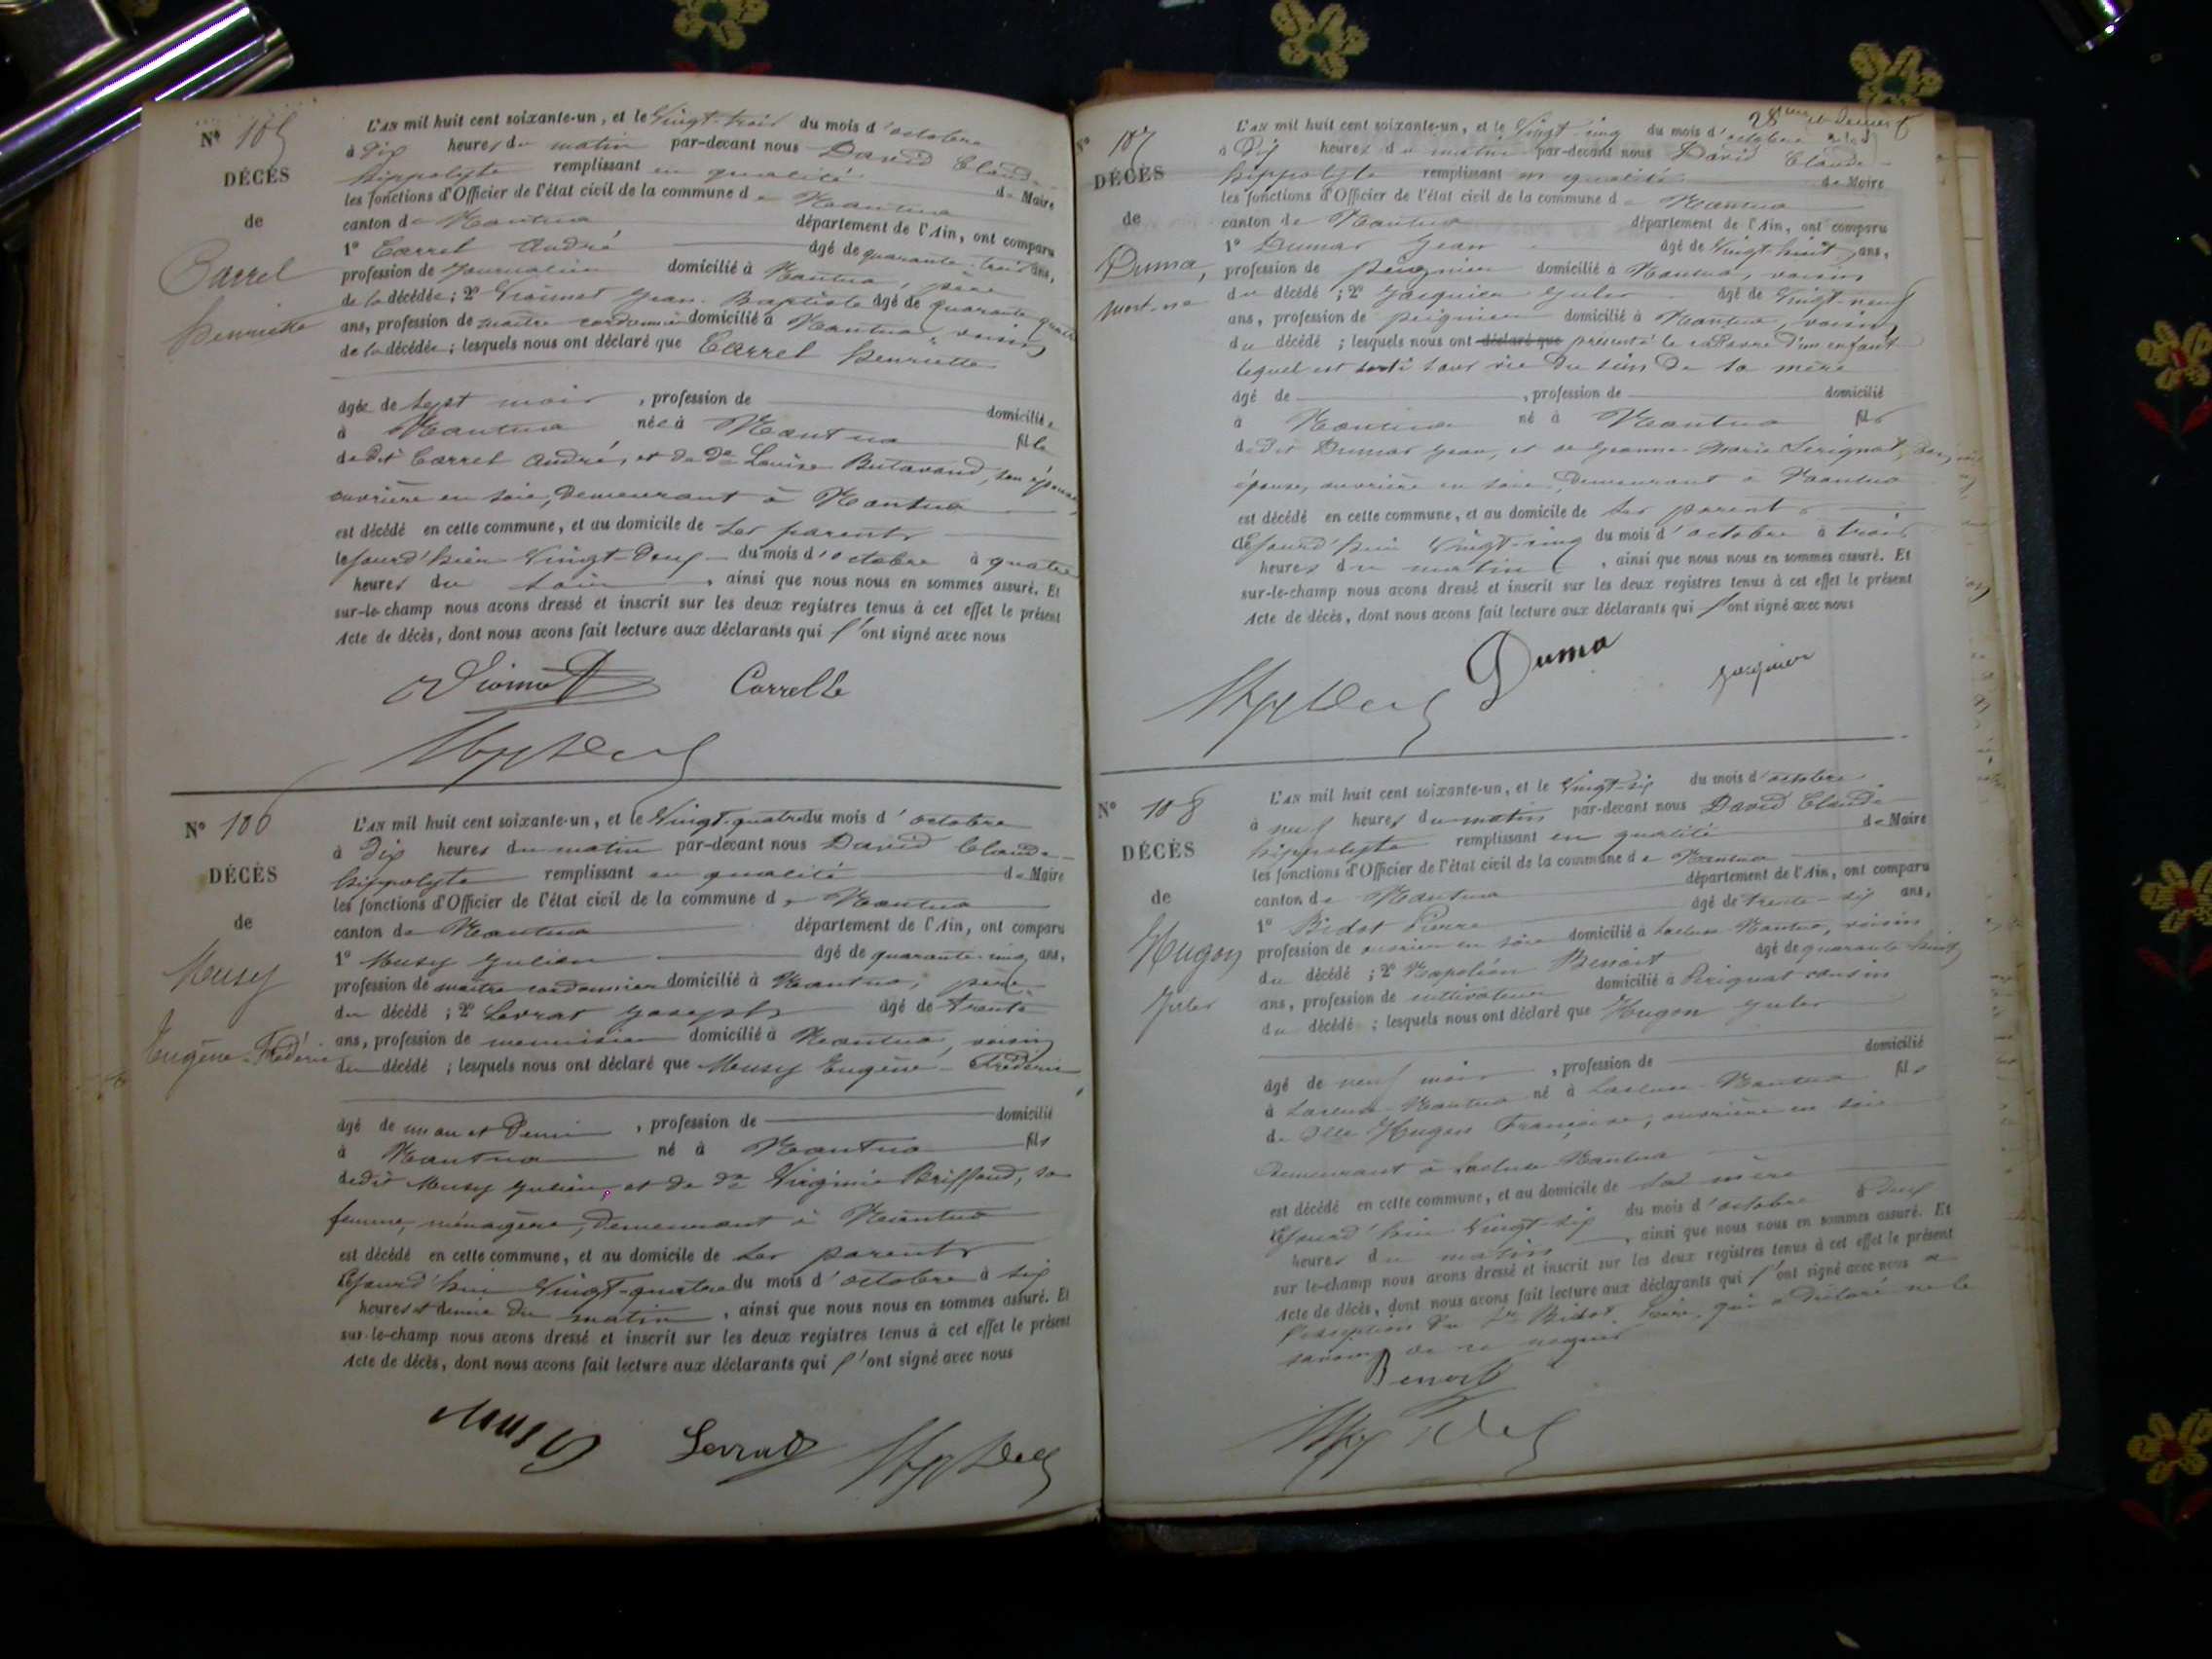 N° 105
DÉCÈS
de
Carrel
henriette
L'AN mil huit cent soixante-un, et le Vingt-trois du mois d'octobre
à dix heures du matin par-devant nous David Claude-
hippolyte remplissant en qualité de Maire
les fonctions d'Officier de l'état civil de la commune de Nantua
canton de Nantua département de l'Ain, ont comparu
1° Carrel André âgé de quarante-trois ans,
profession de Journalier domicilié à Nantua, père
de la décédée ; 2° Jean-Baptiste âgé de quarante quatre
ans, profession de maître cordonnier domicilié à Nantua, voisin
de la décédée ; lesquels nous ont déclaré que Carrel henriette
âgée de sept mois, profession de domiciliée
à Nantua née à Nantua fille
dudit Carrel André, et de de Louise Butavand, son épouse
ouvrière en soie, demeurant à Nantua
est décédé en cette commune, et au domicile de ses parents
le jourd'hier Vingt-deux du mois d'octobre à quatre
heures du soir, ainsi que nous nous en sommes assuré. Et
sur-le-champ nous avons dressé et inscrit sur les deux registres tenus à cet effet le présent
Acte de décès, dont nous avons fait lecture aux déclarants qui l'ont signé avec nous
Carrelle
N° 106
DÉCÈS
de
Musy
Eugène-Frédéric
L'AN mil huit cent soixante-un, et le Vingt-quatre du mois d'octobre
à dix heures du matin par-devant nous David Claude-
hippolyte remplissant en qualité de Maire
les fonctions d'Officier de l'état civil de la commune de Nantua
canton de Nantua département de l'Ain, ont comparu
1° Musy Julien âgé de quarante-cinq ans,
profession de maître cordonnier domicilié à Nantua, père
du décédé ; 2° Levrat Joseph âgé de trente
ans, profession de menuisier domicilié à Nantua, voisin
du décédé ; lesquels nous ont déclaré que Musy Eugène-Frédéric
âgé de un an et demi, profession de domicilié
à Nantua né à Nantua fils
dudit Musy Julien, et de de Virginie Briffaud, sa
femme, ménagère, demeurant à Nantua
est décédé en cette commune, et au domicile de ses parents
cejourd'hui Vingt-quatre du mois d'octobre à six
heures et demie du matin, ainsi que nous nous en sommes assuré. Et
sur-le-champ nous avons dressé et inscrit sur les deux registres tenus à cet effet le présent
Acte de décès, dont nous avons fait lecture aux déclarants qui l'ont signé avec nous
Musy Levrat
28
N° 107
DÉCÈS
de
Duma,
mort-né
L'AN mil huit cent soixante-un, et le Vingt-cinq du mois d'octobre
à Dix heures du matin par-devant nous David Claude-
hippolyte remplissant en qualité de Maire
les fonctions d'Officier de l'état civil de la commune de Nantua
canton de Nantua département de l'Ain, ont comparu
1° Dumas Jean âgé de Vingt-huit ans,
profession de peignier domicilié à Nantua, voisin
du décédé ; 2° Jacquier Jules âgé de Vingt-neuf
ans, profession de peignier domicilié à Nantua, voisin
du décédé ; lesquels nous ont déclaré que présenté le cadavre d'un enfant
lequel est sorti sans vie du sein de sa mère
âgé de , profession de domicilié
à Nantua né à Nantua fils
dudit Dumas Jean, et de Jeanne Marie
épouse, ouvrière en soie, demeurant à Nantua
est décédé en cette commune, et au domicile de ses parents
cejourd'hui Vingt-cinq du mois d'octobre à trois
heures du matin, ainsi que nous nous en sommes assuré. Et
sur-le-champ nous avons dressé et inscrit sur les deux registres tenus à cet effet le présent
Acte de décès, dont nous avons fait lecture aux déclarants qui l'ont signé avec nous
Duma Jacquier
N° 108
DÉCÈS
de
Hugon
Jules
L'AN mil huit cent soixante-un, et le Vingt-six du mois d'octobre
à neuf heures du matin par-devant nous David Claude-
hippolyte remplissant en qualité de Maire
les fonctions d'Officier de l'état civil de la commune de Nantua
canton de Nantua département de l'Ain, ont comparu
1° Bidot Pierre âgé de trente-six ans,
profession de ouvrier en soie domicilié à Nantua, voisin
du décédé ; 2° Napoléon Benoit âgé de quarante-huit
ans, profession de cultivateur domicilié à cousin
du décédé ; lesquels nous ont déclaré que Hugon Jules
âgé de neuf mois, profession de domicilié
à Nantua né à Nantua fils
de Dlle Hugon Françoise, ouvrière en soie
demeurant à Nantua
est décédé en cette commune, et au domicile de sa mère
cejourd'hui Vingt-six du mois d'octobre à deux
heures du matin, ainsi que nous nous en sommes assuré. Et
sur le-champ nous avons dressé et inscrit sur les deux registres tenus à cet effet le présent
Acte de décès, dont nous avons fait lecture aux déclarants qui l'ont signé avec nous à
l'exception du Sr Bidot Pierre, qui a déclaré ne le
savoir de ce requis
Benoit